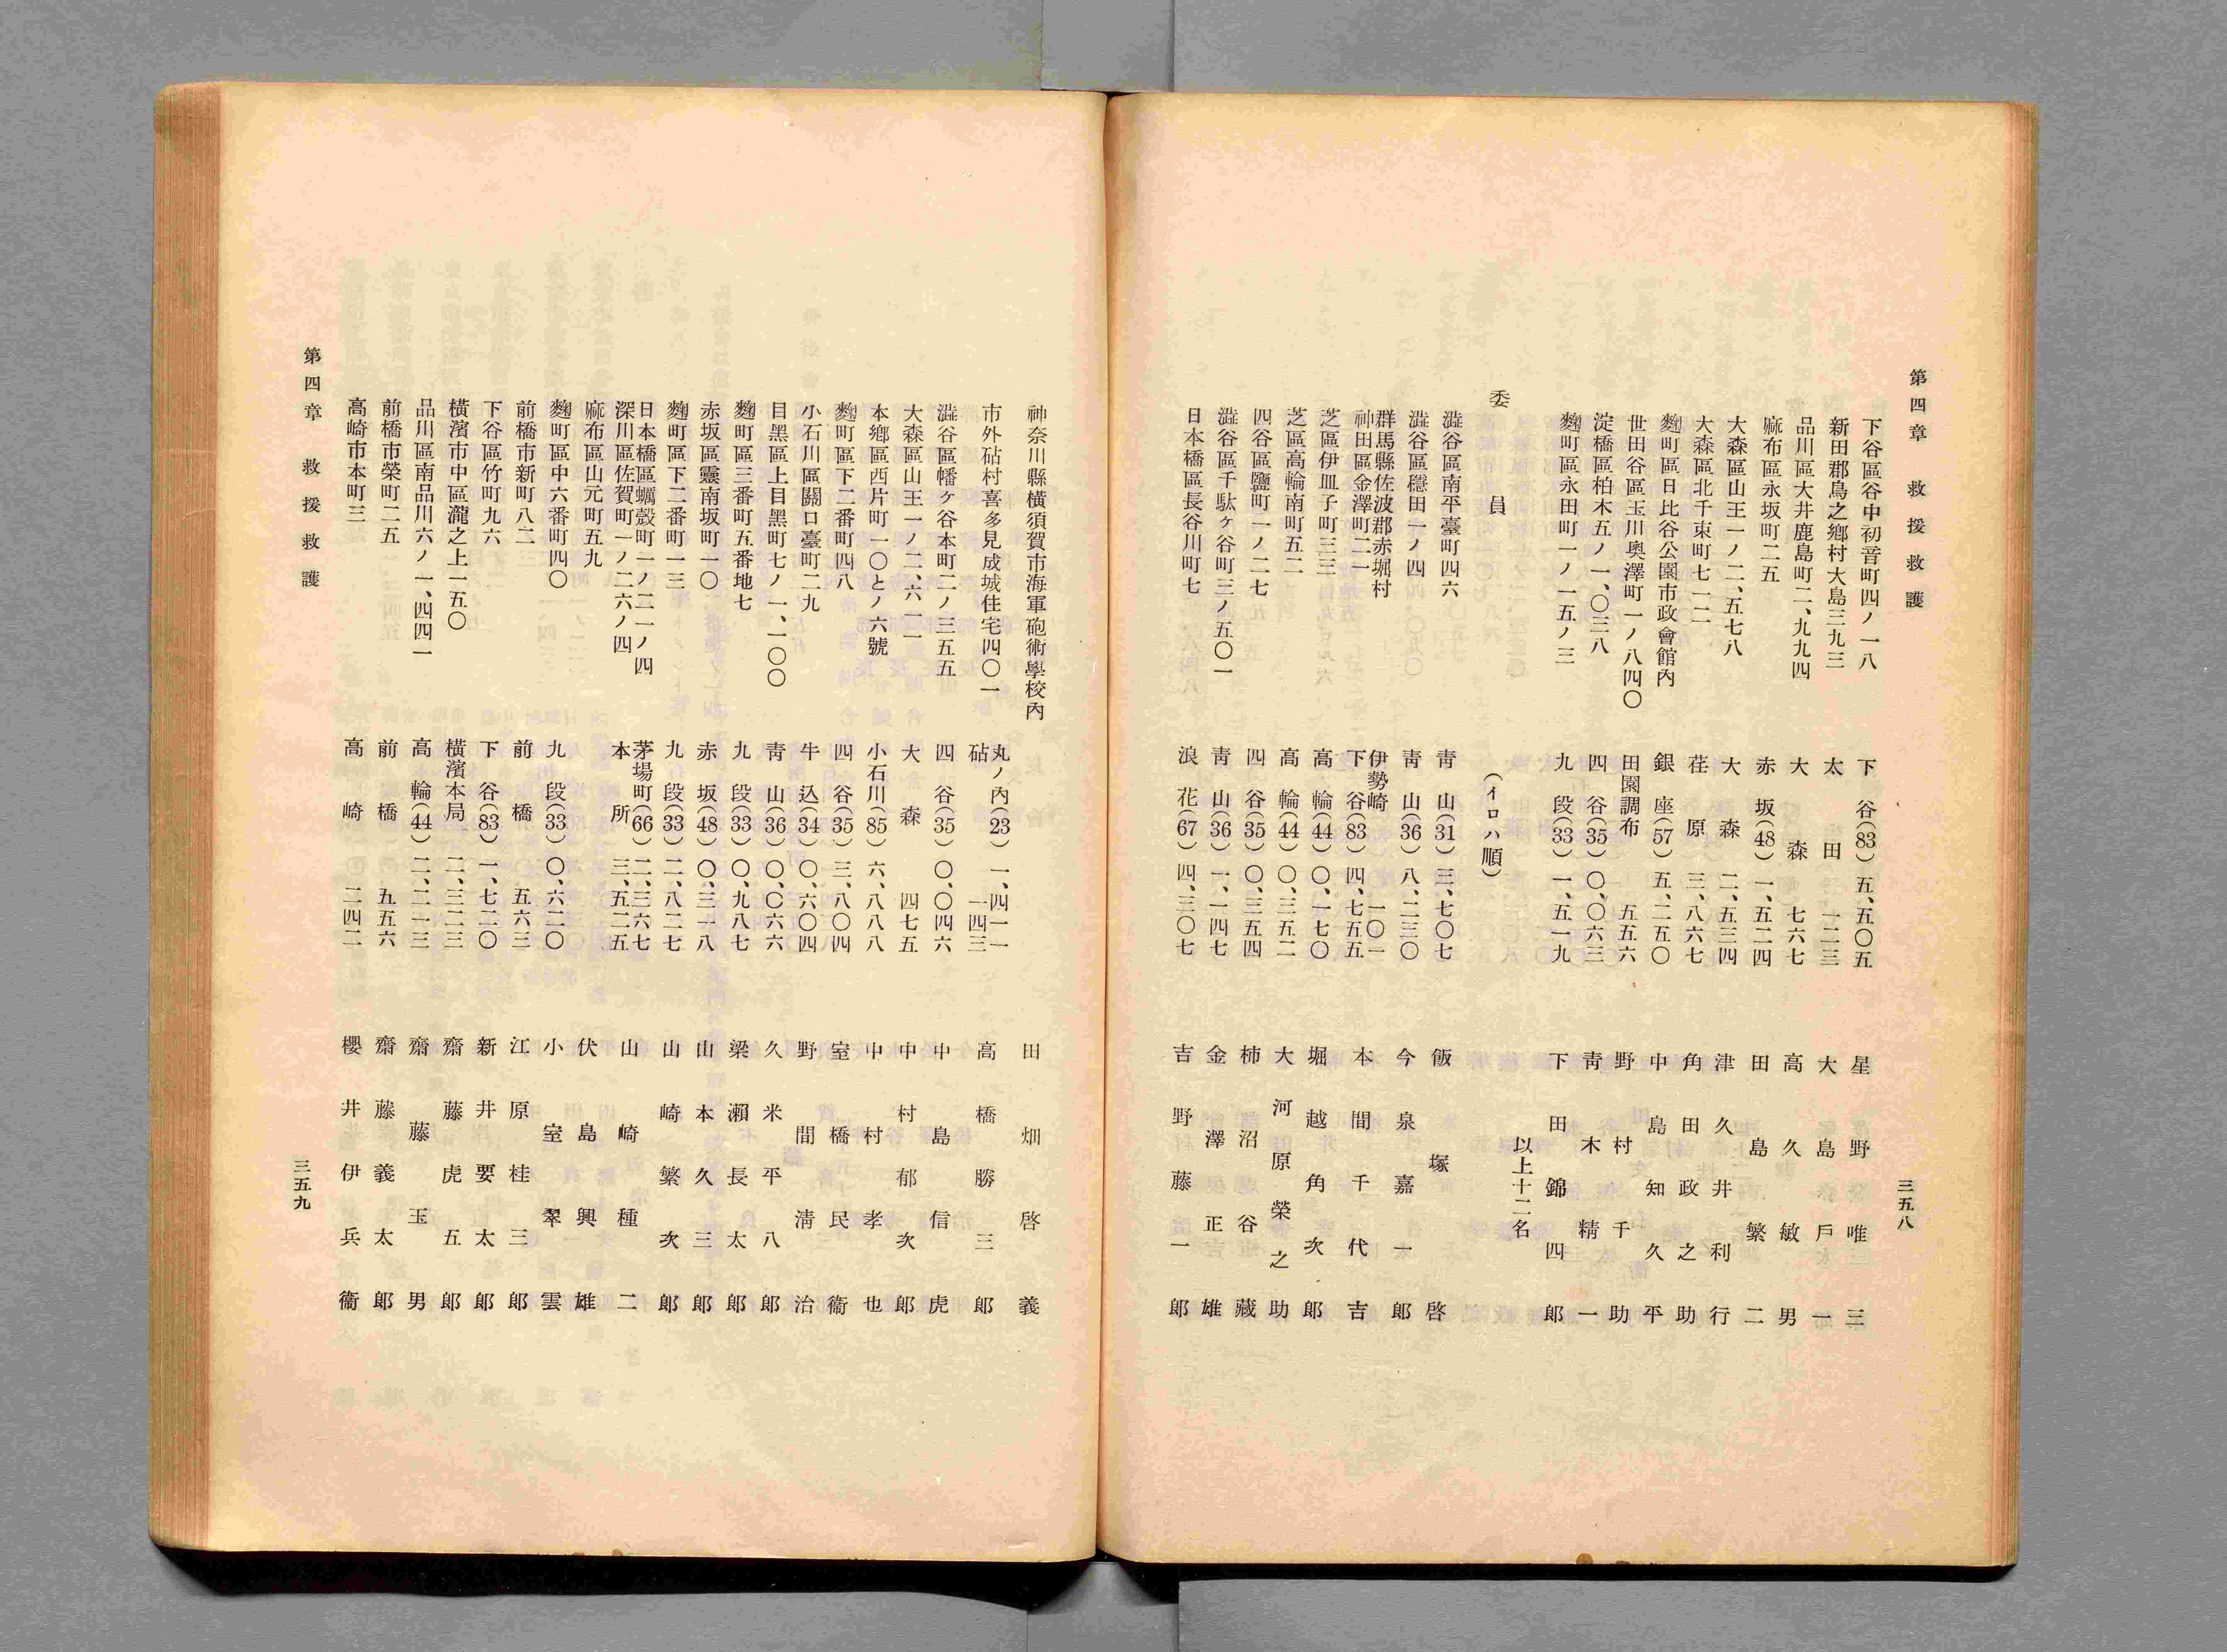 第四章 救援救護
三五八
下谷區谷中初音町四ノ一八 下谷(83)五、五〇五 星野唯三
新田郡鳥之鄕村大島三九三 太田 一二三 大島戶一
品川區大井鹿島町二、九九四 大森 七六七 高久敏男
麻布區永坂町二五 赤坂(48)一、五二四 田島繁二
大森區山王一ノ二、五七八 大森 二、五三四 津久井利行
大森區北千束町七一二 荏原 三、八六七 角田政之助
麴町區日比谷公園市政會館內 銀座(57)五、二五〇 中島知久平
世田谷區玉川奧澤町一ノ八四〇 田園調布 五五六 野村千助
淀橋區柏木五ノ一、〇三八 四谷(35)〇、〇六三 靑木精一
麴町區永田町一ノ一五ノ三 九段(33)一、五一九 下田錦四郎
以上十二名
委員 (イロハ順)
澁谷區南平臺町四六 靑山(31)三、七〇七 飯塚啓
澁谷區穩田一ノ四 靑山(36)八、二三〇 今泉嘉一郎
群馬縣佐波郡赤堀村 伊勢崎 一〇一
神田區金澤町二一 下谷(83)四、七五五 本間千代吉
芝區伊皿子町三三 高輪(44)〇、一七〇 堀越角次郎
芝區高輪南町五二 高輪(44)〇、三五二 大河原榮之助
四谷區鹽町一ノ二七 四谷(35)〇、三五四 柿沼谷藏
澁谷區千駄ケ谷町三ノ五〇一 靑山(36)一、一四七 金澤正雄
日本橋區長谷川町七 浪花(67)四、三〇七 吉野藤一郎
神奈川縣橫須賀市海軍砲術學校內 田畑啓義
市外砧村喜多見成城住宅四〇一 丸ノ內(23)一、四一一 砧 一四三 高橋勝三郎
澁谷區幡ケ谷本町二ノ三五五 四谷(35)〇、〇四六 中島信虎
大森區山王一ノ二、六一一 大森 四七五 中村郁次郎
本鄕區西片町一〇とノ六號 小石川(85)六、八八八 中村孝也
麴町區下二番町四八 四谷(35)三、八〇四 室橋民衞
小石川區關口臺町二九 牛込(34)〇、六〇四 野間淸治
目黑區上目黑町七ノ一、一〇〇 靑山(36)〇、〇六六 久米平八郎
麴町區三番町五番地七 九段(33)〇、九八七 梁瀨長太郎
赤坂區靈南坂町一〇 赤坂(48)〇、三一八 山本久三郎
麴町區下二番町一三 九段(33)二、八二七 山崎繁次郎
日本橋區蠣殼町一ノ二一ノ四 茅場町(66)二、三六七
深川區佐賀町一ノ二六ノ四 本所 三、五二五 山崎種二
麻布區山元町五九 伏島興雄
麴町區中六番町四〇 九段(33)〇、六二〇 小室翠雲
前橋市新町八二 前橋 五六三 江原桂三郎
下谷區竹町九六 下谷(83)一、七二〇 新井要太郎
橫濱市中區瀧之上一五〇 橫濱本局 二、三二三 齋藤虎五郎
品川區南品川六ノ一、四四一 高輪(44)二、二一三 齋藤玉男
前橋市榮町二五 前橋 五五六 齋藤義太郎
高崎市本町三 高崎 二四二 櫻井伊兵衞
第四章 救援救護
三五九